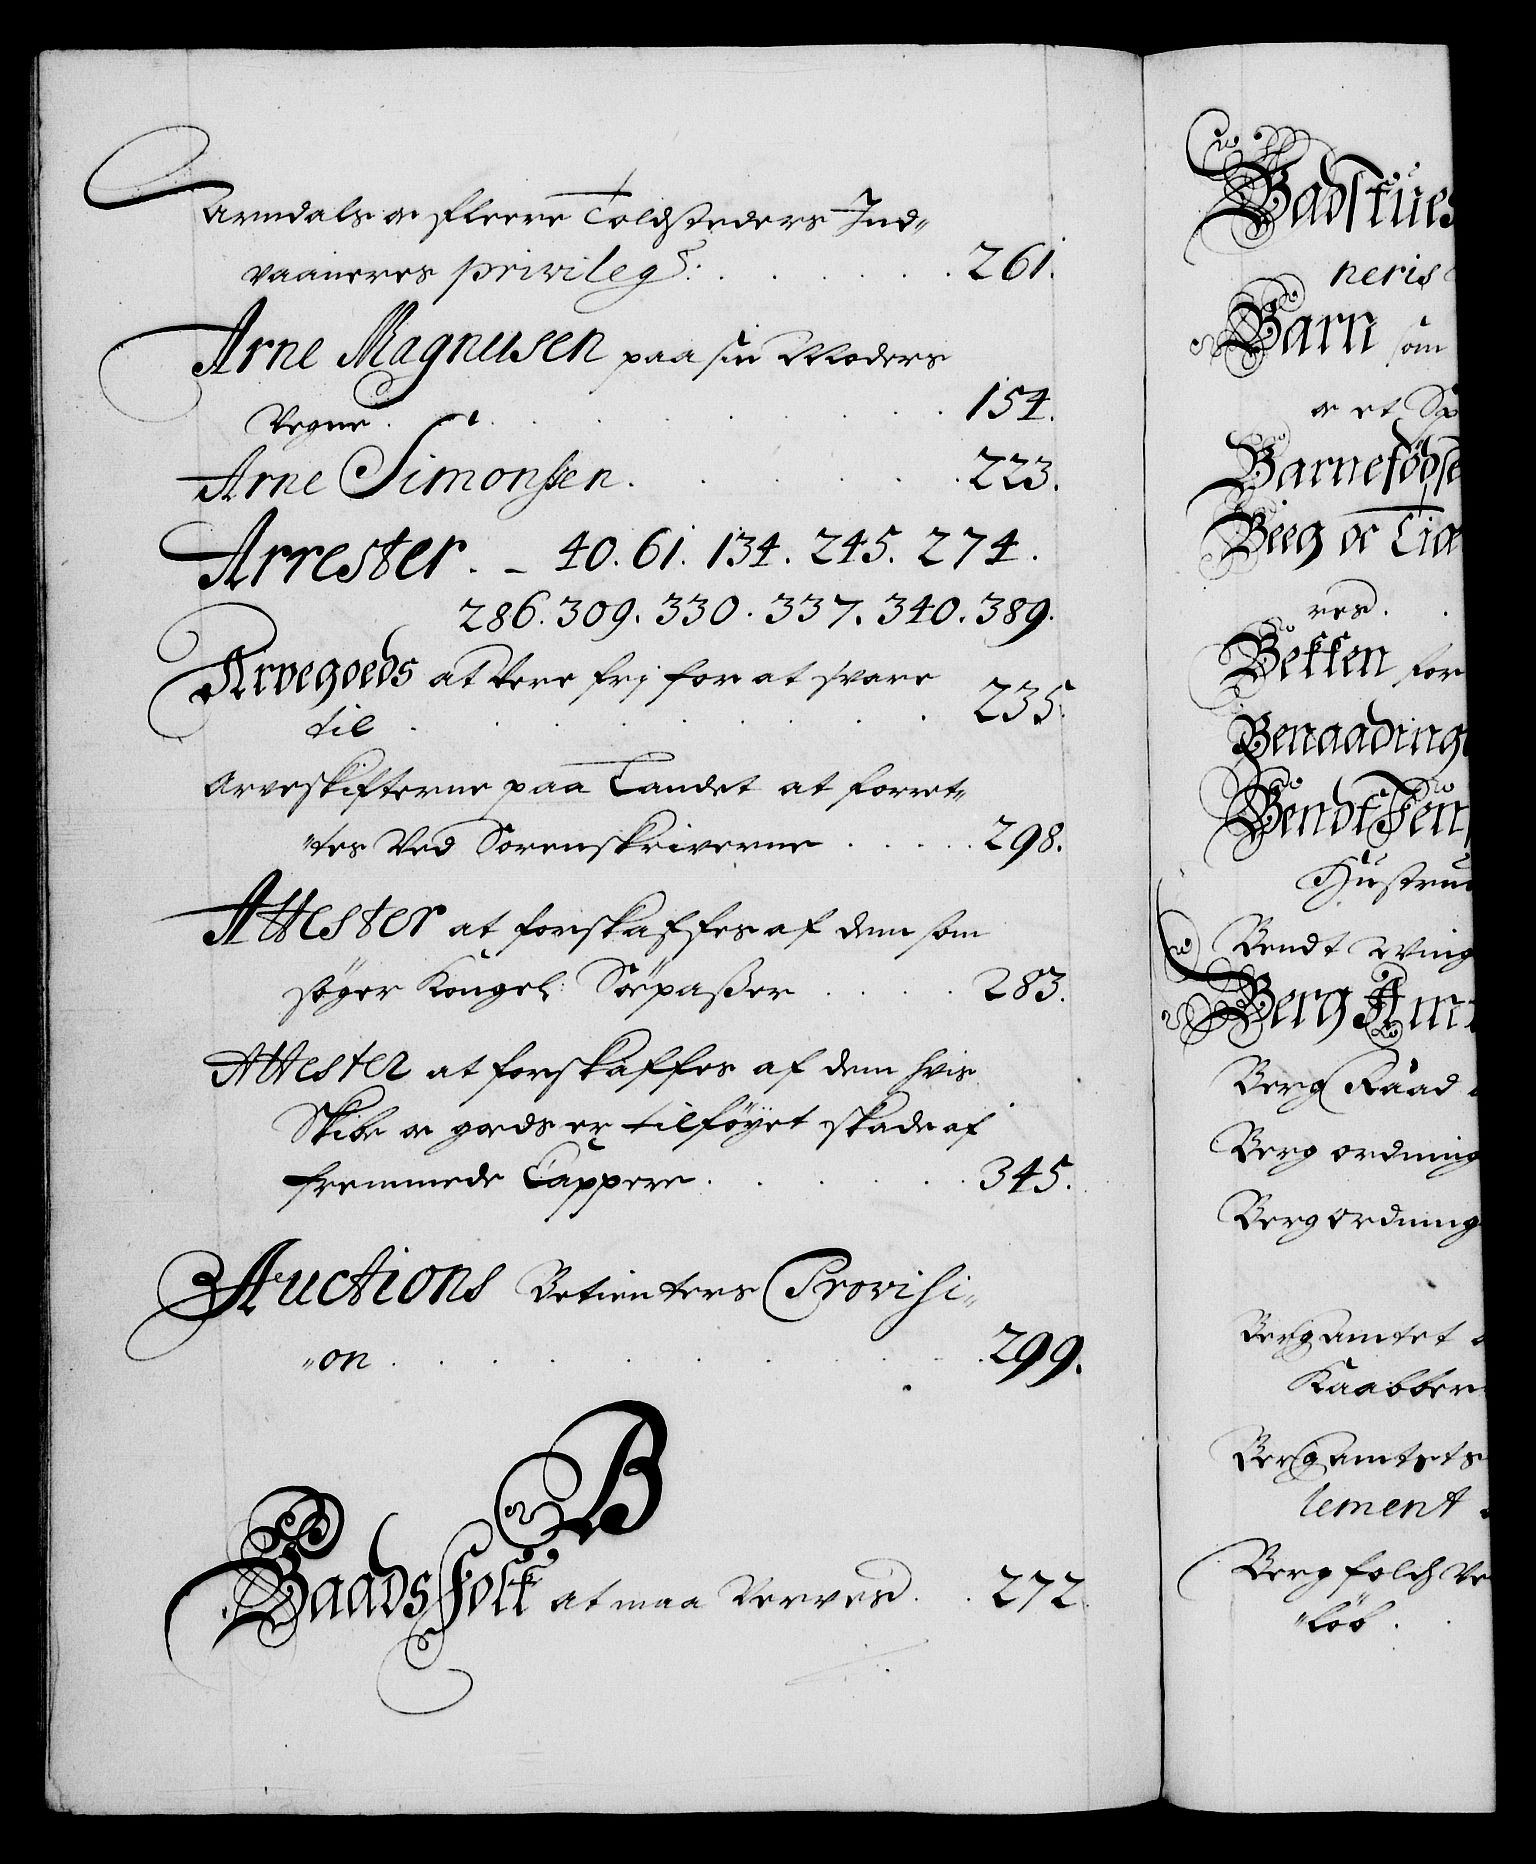 Arndals oc fleere Toldsteders Ind-
vaaneres privileg: . . . . . . 261.
Arne Magnusen paa sin Moders
Vegne . . . . . . . 154.
Arne Simonssen. . . . . . 223.
Arrester. _ 40. 61. 134. 245. 274.
286. 309. 330. 337. 340. 389.
Arvegoeds at vere frj for at svare
til . . . . . . . . 235.
Arveskifterne paa Landet at forret-
tes ved Sorenskriverne . . . . . 298.
Attester at forskaffes af dem som
søger Kongel: Söepasßer . . . . 283.
Attester at forskaffes af dem hvis
Skibe oc gods er tilføyet skade af
fremmede Cappere . . . . . 345.
Auctions Betienters Provisi-
on . . . . . . . . 299.
B
Baads Folk at maa Verves . . 272.
Badstues
neris
Barn som
oc et Sp
Barnefödse
Beeg oc Tiæ
res . .
Bekken for
Benaading
Bendt Jens
Hustrue
Bendt Wing
Berg Amt
Berg Raad
Berg ordning
Berg ordning
Bergamtet
Kaabber
Bergamtets
lement
Berg folch Ve
löb . .